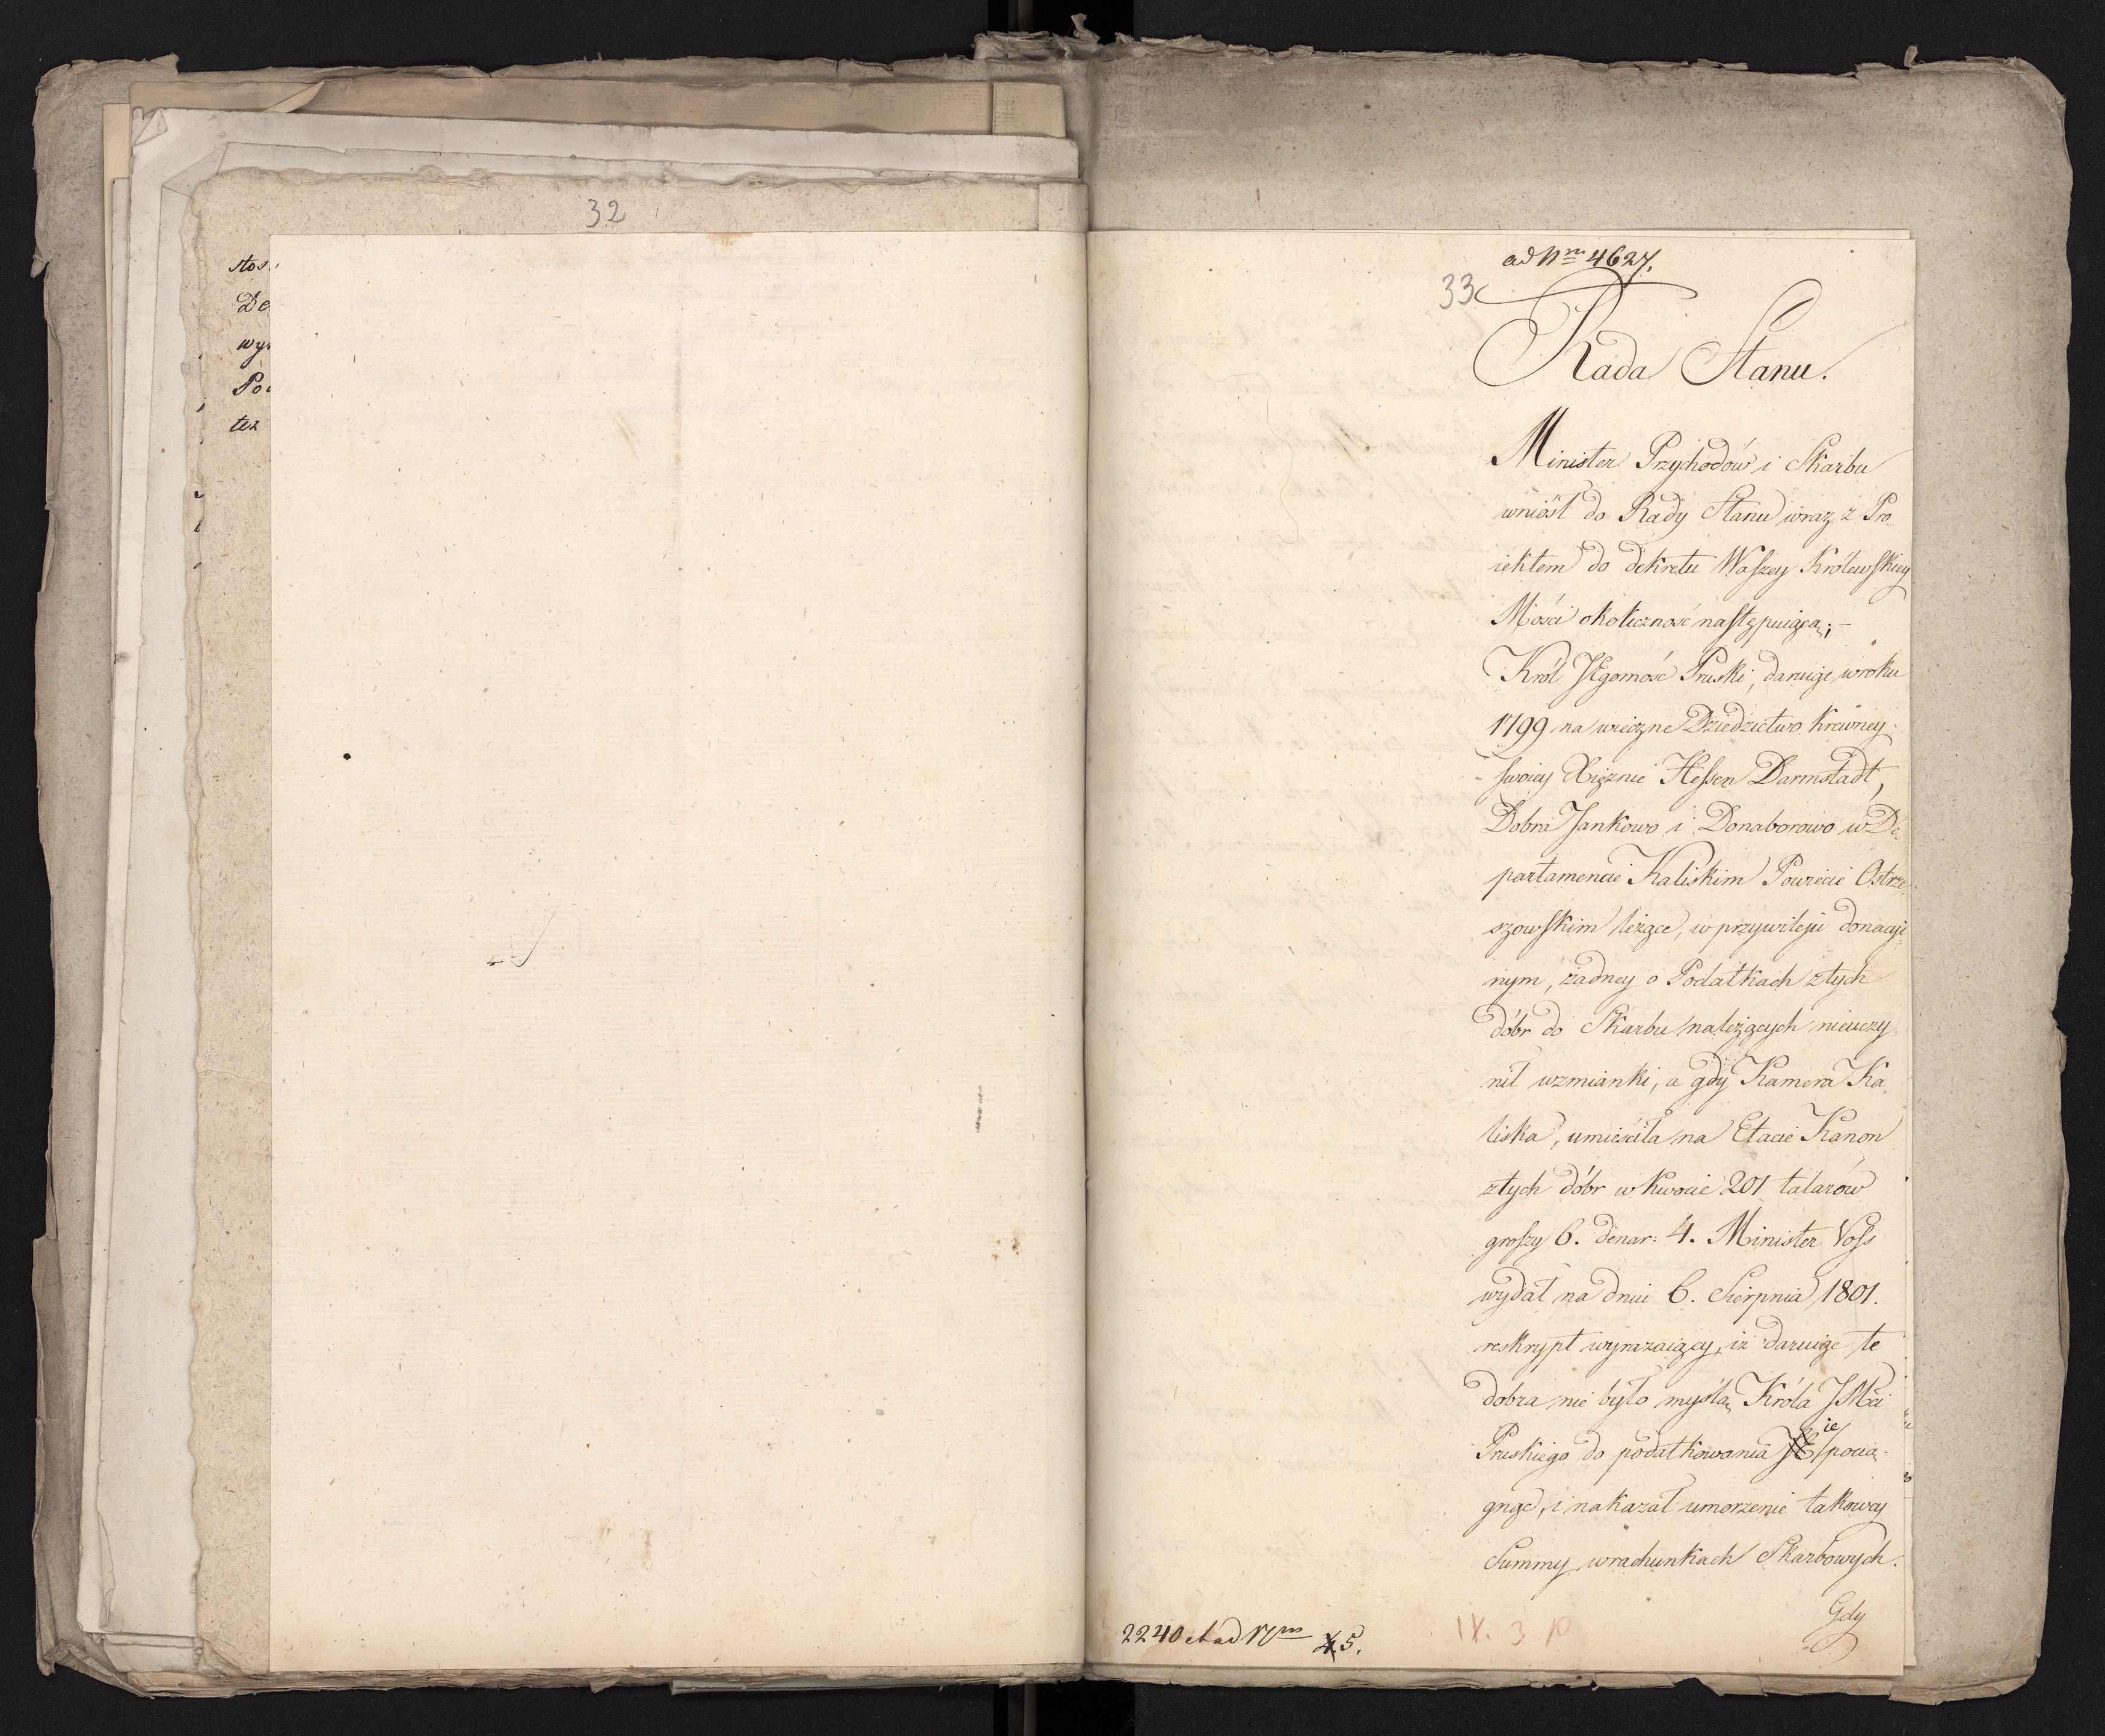 32
ad Nrm 4627.
33
Rada Stanu.
Minister Przychodów i Skarbu
wniósł do Rady Stanu wraz z Pro
iektem do dekretu Waszey Królewskiey
Mości okoliczność następuiącą; –
Król JEgomość Pruski, daruiąc w roku
1799 na wieczne Dziedzictwo Krewney
swoiey Xiężnie Hessen Darmstadt,
Dobra Jankowo i Donaborowo w De-
partamencie Kaliskim Powiecie Ostrze
szowskim leżące, w przywileju donacyi
nym, żadney o Podatkach z tych
dóbr do Skarbu należących nieuczy
nił wzmianki, a gdy Kamera Ka
liska, umieściła na Etacie Kanon
z tych dóbr w kwocie 201 talarów
groszy 6. denar: 4. Minister Voss
wydał na dniu 6. Sierpnia 1801.
reskrypt wyrażaiący, iż daruiąc te
dobra nie było myślą Króla JMci
Pruskiego do podatkowania ie pocią-
gnąć, i nakazał umorzenie takowey
Summy w rachunkach Skarbowych.
Gdy
2240 et ad 17 5.
IX. 3
stos
De
wy
Po
też